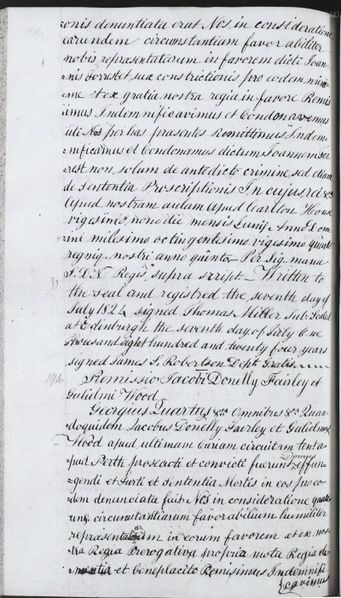 tionis denuntiata erat Nos in consideratione
earundem circumstantium favorabiliter
nobis representatarum in favorem dicti Joan
nis Forrest et suæ constrictionis pro eodem
me et ex gratia nostra regia in favore Remis
imus Indemnificavimus et Condonavimus
uti Nos per has presentes Remittimus Indem
nificamus et Condonamus dictum Joannem For
rest non solum de antedicto crimine sed etiam
de Sententia Proscriptionis In cujus rei &c
Apud nostram aulam apud Carlton House
vigesimo nono die mensis Junij Anno Dom
ini milesimo octingentesimo vigesimo quarto
regniq nostri anno quinto Per Sig. manu
S.D.N. Regis supra script. Written to
the Seal and registred the seventh day of
July 1824 signed Thomas Miller Sub.
at Edenburgh the seventh day of July One
thousand eight hundred and twenty four years
signed James F. Robertson Dept. Gratis
194 Remissio Jacobi Donelly Fairley et
Gulielmi Wood
Georgius Quartus &c Omnibus &c Quan
doquidem Jacobus Donelly Fairley et Gulielmus
Wood apud ultimam Curiam circuitam tent
apud Perth prosecuti et convicti fuerunt effrin
Domus
gendi et Furti et Sententia Mortis in eos pro eo
dem denunciata fuit Nos in consideratione
und circumstantiarum favorabilium humiliter
representatarum in eorum favorem et ex nos
tra Regia Prerogativa propria motu Regia cle
mentia et beneplacito Remisimus Indemnifi
cavimus